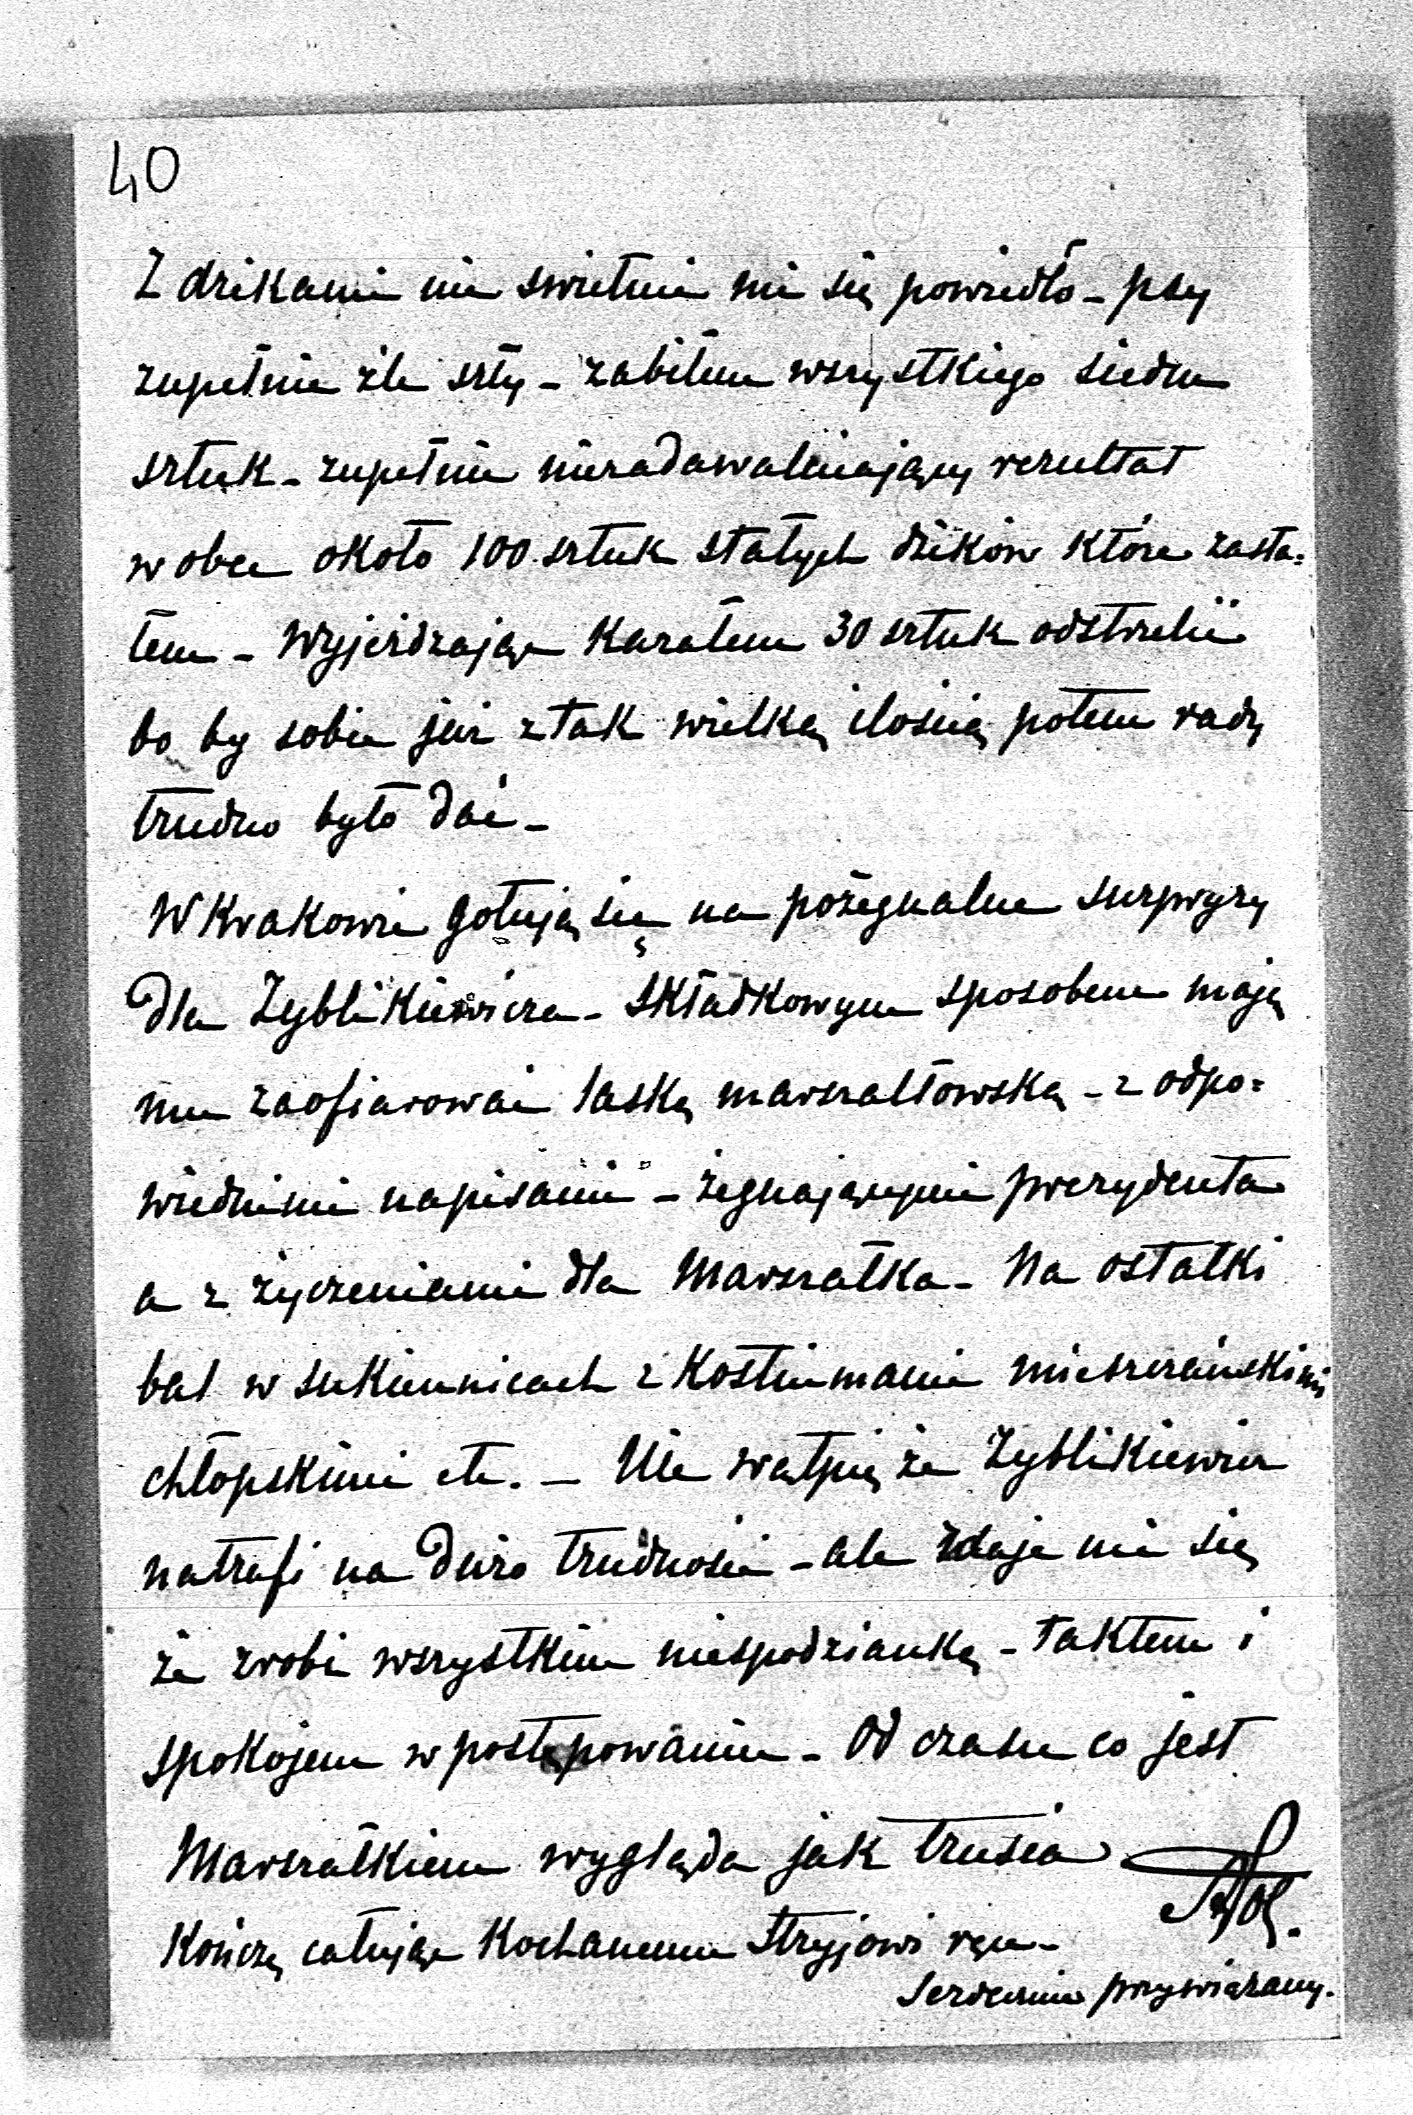 40
Z dzikami nie swietnie mi się powiedło - psy
zupełnie źle szły - zabiłem wszystkiego siedm
sztuk - zupełnie niezadawalniający rezultat
wobec około 100 sztuk stałych dzików które zasta=
łem - Wyjeżdzając kazałem 30 sztuk odstrzelić
bo by sobie już z tak wielką ilością potem rady
trudno było dać -
W Krakowie gotują się na pożegnalne surpryzy
dla Zyblikiewicza - składkowym sposobem mają
mu zaofiarować laskę marszałtowską - z odpo=
wiednimi napisami - żegnającymi prezydenta
a z życzeniami dla Marszałka - Na ostatki
bal w sukiennicach z kostiumami mieszczańskimi
chłopskimi etc. - Nie wątpię że Zyblikiewicz
natrafi na dużo trudności - ale zdaje mi się
że zrobi wszystkim niespodziankę - taktem i
spokojem w postępowaniu - Od czasu co jest
Marszałkiem wygląda jak trusia
Kończę całując Kochanemu Stryjowi ręce -
Serdecznie przywiązany.